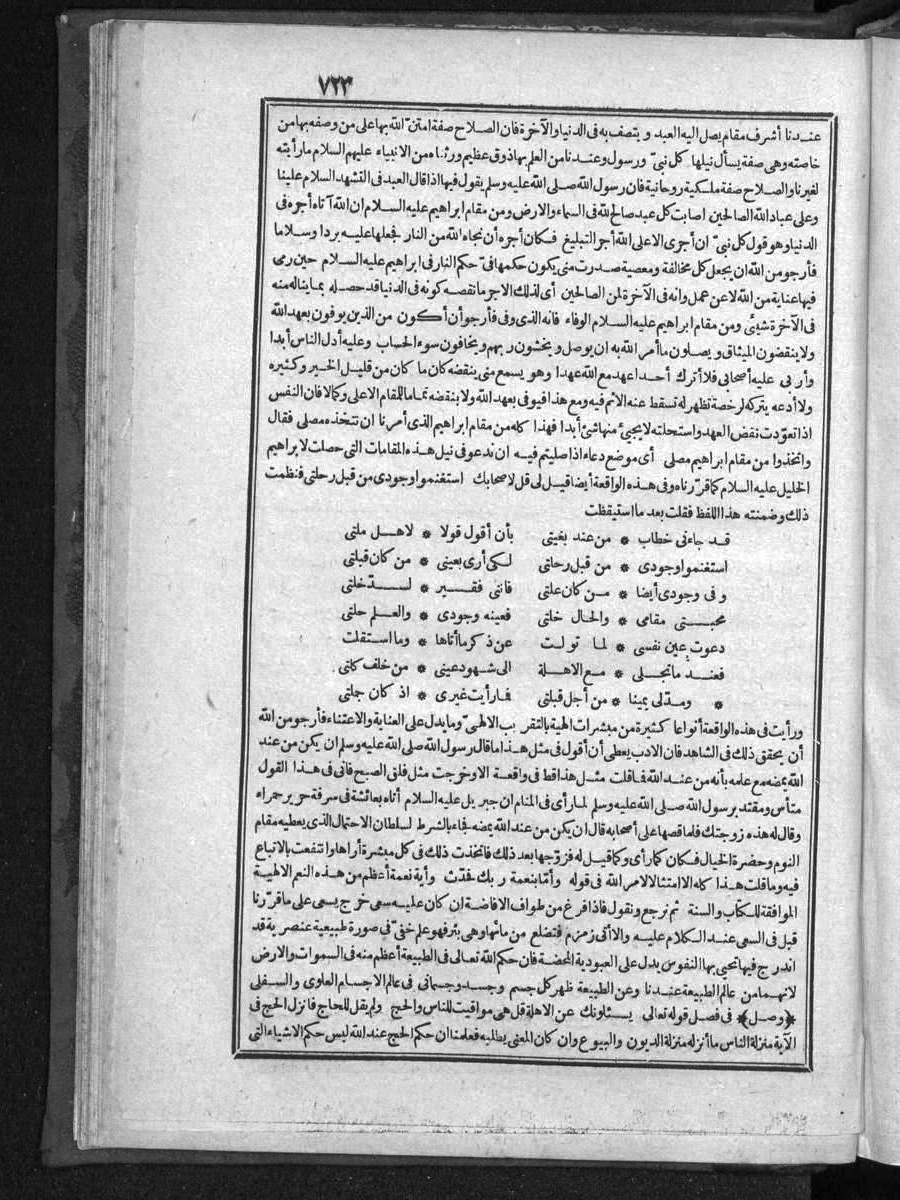 ٧٢٣
عندنا أشرف مقام يصل اليه العبد ويتصف به فى الدنيا والآخرة فان الصلاح صفة امتن الله بها على من وصفه بها من
خاصته وهى صفة يسأل نيلها كل نبىّ ورسول وعندنا من العلم بها ذوق عظيم ورثناه من الانبياء عليهم السلام ما رأيته
لغيرنا والصلاح صفة ملكية روحانية فان رسول الله صلى الله عليه وسلم يقول فيها اذا قال العبد فى التشهد السلام علينا
وعلى عباد الله الصالحين اصابت كل عبد صالح لله فى السماء والارض ومن مقام ابراهيم عليه السلام ان الله آتاه أجره فى
الدنيا وهو قول كل نبىّ ان أجرى الا على الله أجر التبليغ فكان أجره أن نجاه الله من النار فجعلها عليه بردا وسلاما
فأرجو من الله ان يجعل كل مخالفة ومعصية صدرت منى يكون حكمها فىّ حكم النار فى ابراهيم عليه السلام حين رمى
فيها عناية من الله لا عن عمل وانه فى الآخرة لمن الصالحين أى لذلك الاجر ما نقصه كونه فى الدنيا قد حصله بما يناله منه
فى الآخرة شئ ومن مقام ابراهيم عليه السلام الوفاء فانه الذى وفى فأرجو أن أكون من الذين يوفون بعهد الله
ولا ينقضون الميثاق ويصلون ما أمر الله به ان يوصل ويخشون ربهم ويخافون سوء الحساب وعليه أدل الناس أبدا
وأربى عليه أصحابى فلا أترك أحدا عهد مع الله عهدا وهو يسمع منى ينقضه كان ما كان من قليل الخير وكثيره
ولا أدعه يتركه لرخصة تظهر له تسقط عنه الاثم فيه ومع هذا فيوفى بعهد الله ولا ينقضه تماما للمقام الاعلى وكمالا فان النفس
اذا تعوّدت نقض العهد واستحلته لا يجىء منها شئ أبدا فهذا كله من مقام ابراهيم الذى أمرنا ان نتخذه مصلى فقال
واتخذوا من مقام ابراهيم مصلى أى موضع دعاء اذا صليتم فيه ان ندعو فى نيل هذه المقامات التى حصلت لابراهيم
الخليل عليه السلام كما قرّرناه وفى هذه الواقعة أيضا قيل لى قل لاصحابك استغنموا وجودى من قبل رحلتى فنظمت
ذلك وضمنته هذا اللفظ فقلت بعد ما استيقظت
قد جاءنى خطاب * من عند بغيتى بأن أقول قولا * لاهل ملتى
استغنموا وجودى * من قبل رحلتى لكى أرى بعينى * من كان قبلتى
وفى وجودى أيضا * من كان علتى فاننى فقير * لسدّ خلتى
محبتى مقامى * والحال خلتى فعينه وجودى * والعلم حلتى
دعوت عين نفسى * لما تولت عن ذكر ما أتاها * وما استقلت
فعند ما تجلى * مع الاهلة الى شهود عينى * من خلف كلتى
* ومدّ لى يمينا * من أجل قبلتى فما رأيت غيرى * اذ كان جملتى
ورأيت فى هذه الواقعة أنواعا كثيرة من مبشرات الهية بالتقريب الالهىّ وما يدل على العناية والاعتناء فأرجو من الله
أن يحقق ذلك فى الشاهد فان الادب يعطى أن أقول فى مثل هذا ما قال رسول الله صلى الله عليه وسلم ان يكن من عند
الله يمضه مع علمه بأنه من عند الله فما قلت مثل هذا قط فى واقعة الا وخرجت مثل فلق الصبح فانى فى هذا القول
متأس ومقتد برسول الله صلى الله عليه وسلم لما رأى فى المنام ان جبريل عليه السلام أتاه بعائشة فى سرقة حرير حمراء
وقال له هذه زوجتك فلما قصها على أصحابه قال ان يكن من عند الله يمضه فجاء بالشرط لسلطان الاحتمال الذى يعطيه مقام
النوم وحضرة الخيال فكان كما رأى وكما قيل له فزوّجها بعد ذلك فاتخذت ذلك فى كل مبشرة أراها وانتفعت بالاتباع
فيه وما قلت هذا كله الا امتثالا لامر الله فى قوله وأمّا بنعمة ربك فحدّث وأية نعمة أعظم من هذه النعم الالهية
الموافقة للكتاب والسنة ثم نرجع ونقول فاذا فرغ من طواف الافاضة ان كان عليه سعى خرج يسعى على ما قرّرنا
قبل فى السعى عند الكلام عليه والا أتى زمزم فتضلع من مائها وهى بئر فهو علم خفىّ فى صورة طبيعية عنصرية قد
اندرج فيها تحيى بها النفوس يدل على العبودية المحضة فان حكم الله تعالى فى الطبيعة أعظم منه فى السموات والارض
لانهما من عالم الطبيعة عندنا وعن الطبيعة ظهر كل جسم وجسد وجسمانى فى عالم الاجسام العلوى والسفلى
﴿وصل﴾ فى فصل قوله تعالى يسئلونك عن الاهلة قل هى مواقيت للناس والحج ولم يقل للحاج فانزل الحج فى
الآية منزلة الناس ما أنزله منزلة الديون والبيوع وان كان المعنى يطلبه فعلمنا ان حكم الحج عند الله ليس حكم الاشياء التى